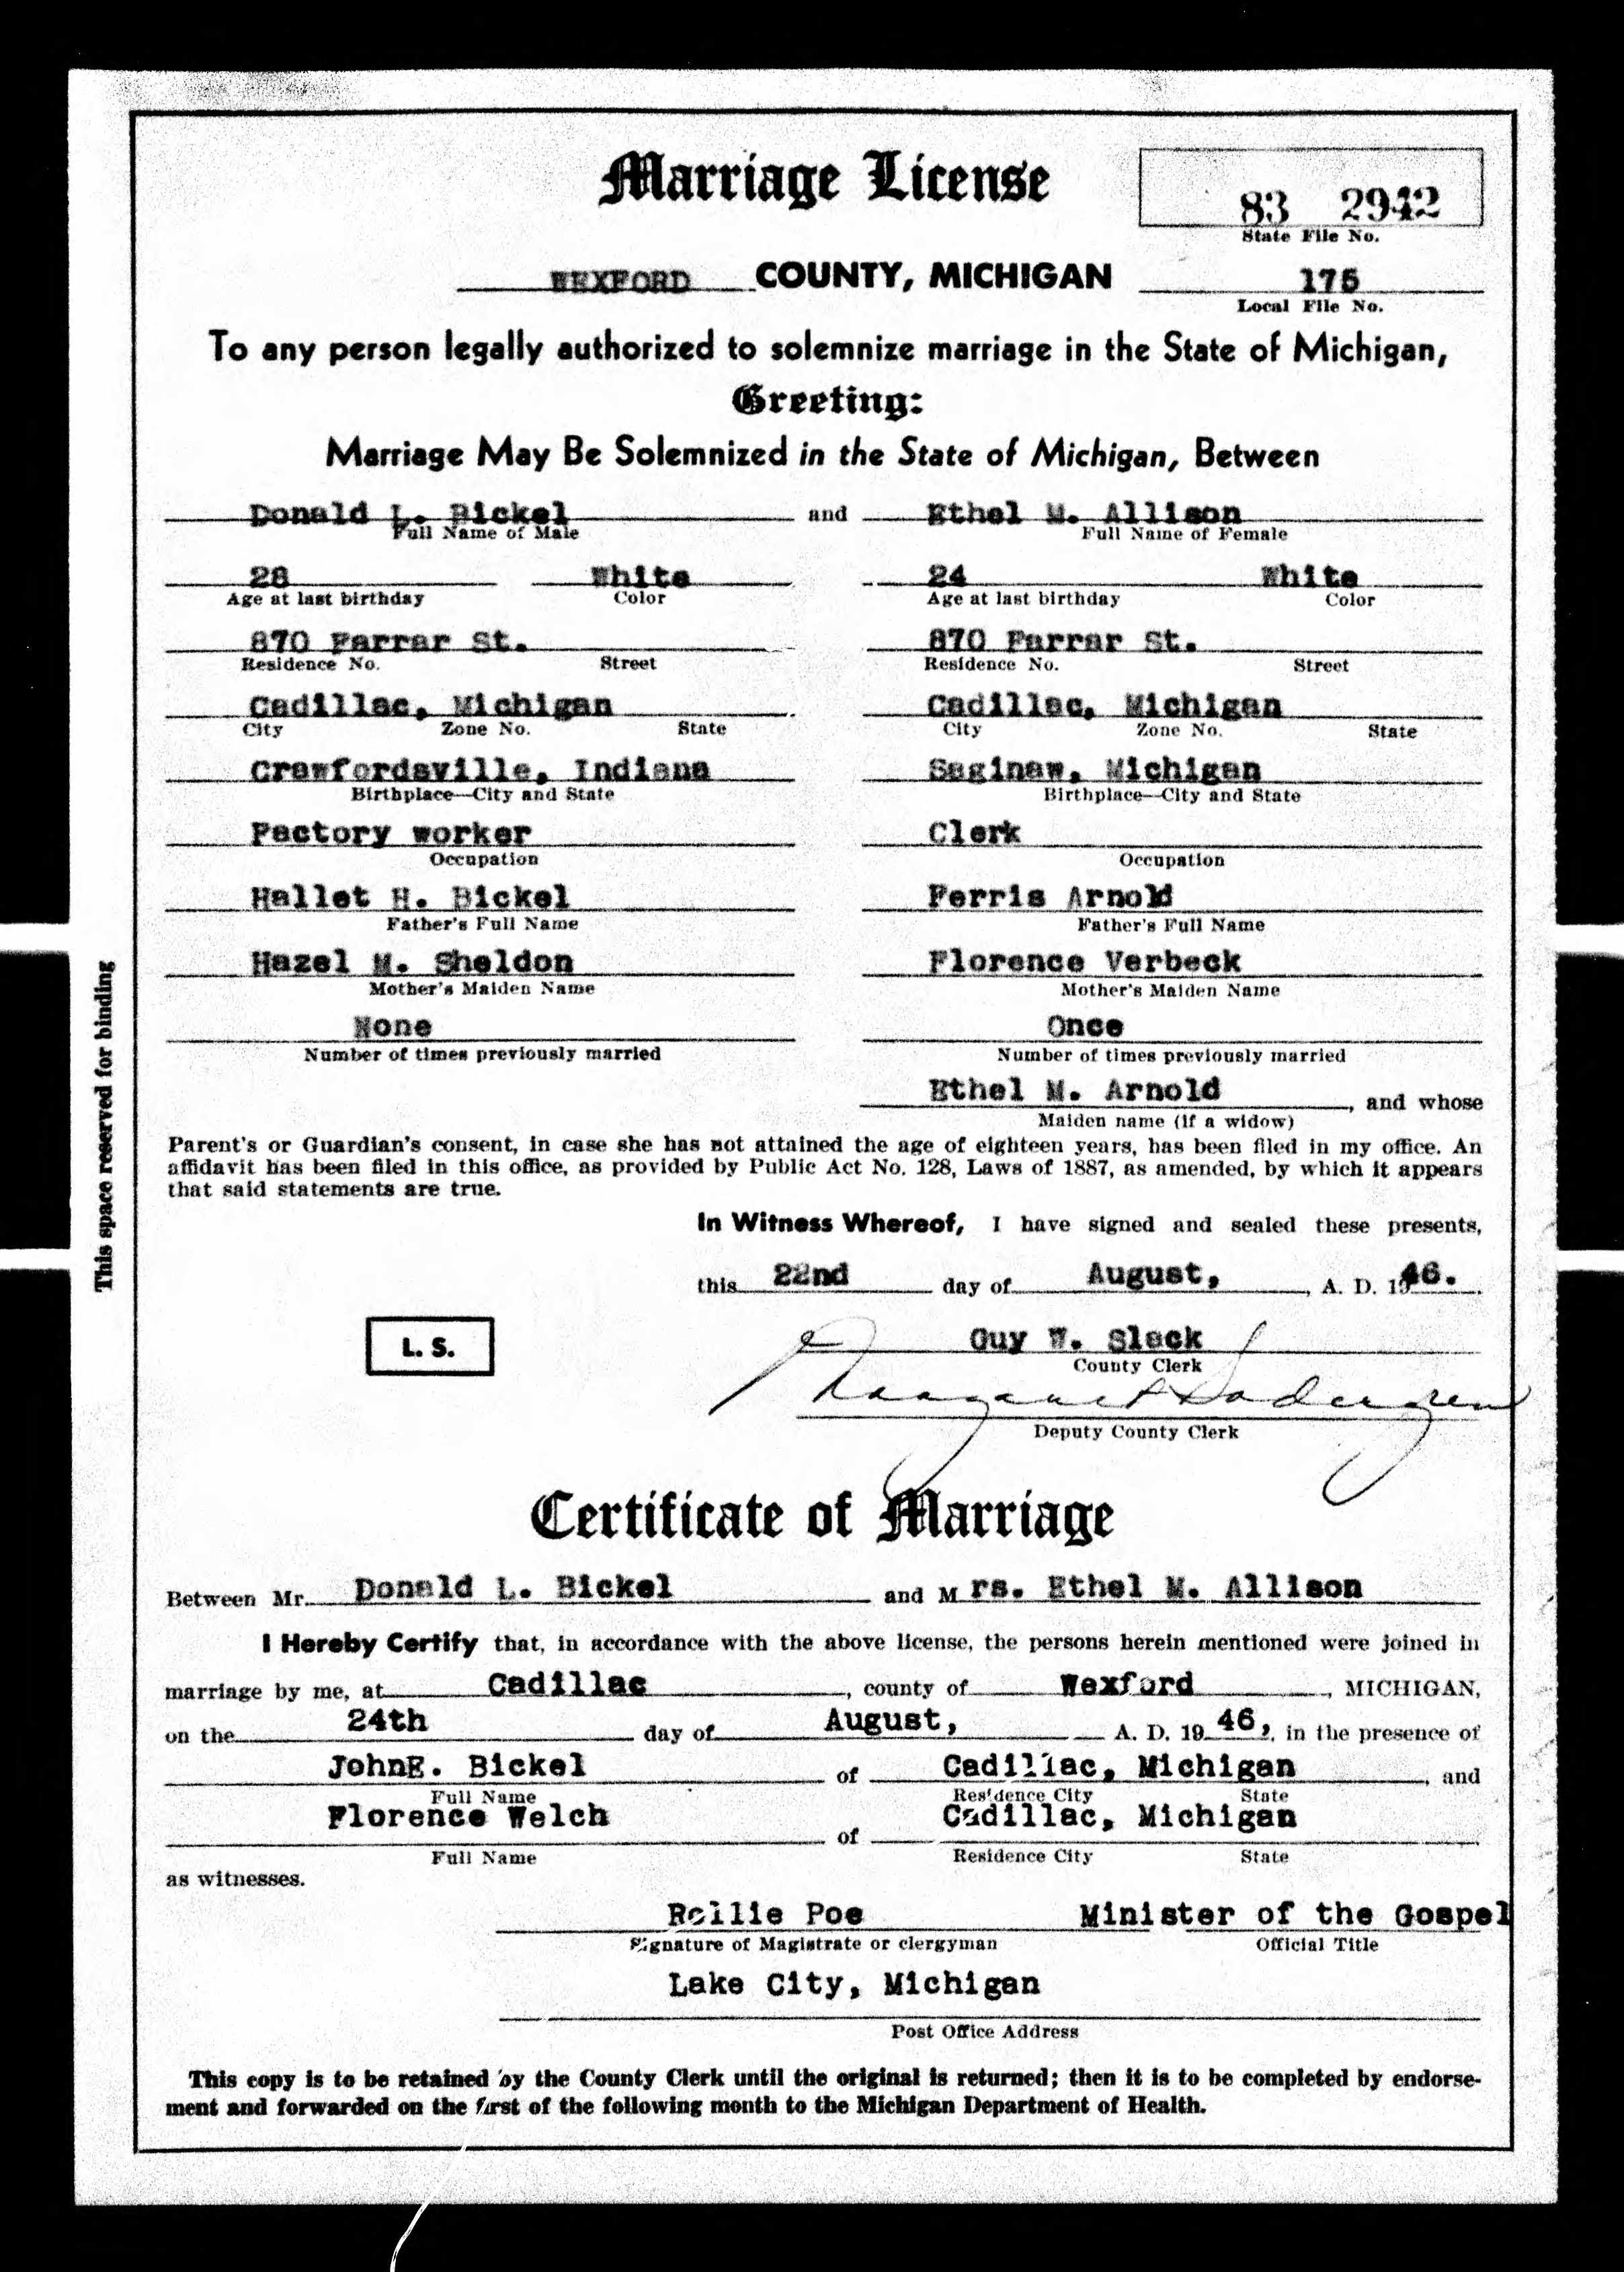 Marriage License
83 2942
State File No.
WEXFORD COUNTY, MICHIGAN
175
Local File No.
To any person legally authorized to solemnize marriage in the State of Michigan,
Greeting:
Marriage May Be Solemnized in the State of Michigan, Between
Donald L. Bickel and Ethel M. Allison
Full Name of Male Full Name of Female
28 White 24 White
Age at last birthday Color Age at last birthday Color
870 Farrar St. 870 Farrar St.
Residence No. Street Residence No. Street
Cadillac, Michigan Cadillac, Michigan
City Zone No. State City Zone No. State
Crawfordsville, Indiana Saginaw, Michigan
Birthplace—City and State Birthplace—City and State
Factory worker Clerk
Occupation Occupation
Hallet H. Bickel Ferris Arnold
Father's Full Name Father's Full Name
Hazel M. Sheldon Florence Verbeck
Mother's Maiden Name Mother's Maiden Name
None Once
Number of times previously married Number of times previously married
Ethel M. Arnold, and whose
Maiden name (if a widow)
Parent's or Guardian's consent, in case she has not attained the age of eighteen years, has been filed in my office. An
affidavit has been filed in this office, as provided by Public Act No. 128, Laws of 1887, as amended, by which it appears
that said statements are true.
In Witness Whereof, I have signed and sealed these presents,
this 22nd day of August, , A. D. 1946.
L. S.
Guy W. Slack
County Clerk
Margaret Sodergren
Deputy County Clerk
This space reserved for binding
Certificate of Marriage
Between Mr. Donald L. Bickel and Mrs. Ethel M. Allison
I Hereby Certify that, in accordance with the above license, the persons herein mentioned were joined in
marriage by me, at Cadillac, county of Wexford, MICHIGAN,
on the 24th day of August, A. D. 19 46, in the presence of
JohnE. Bickel of Cadillac, Michigan, and
Full Name Residence City State
Florence Welch of Cadillac, Michigan
Full Name Residence City State
as witnesses.
Rollie Poe Minister of the Gospel
Signature of Magistrate or clergyman Official Title
Lake City, Michigan
Post Office Address
This copy is to be retained by the County Clerk until the original is returned; then it is to be completed by endorse-
ment and forwarded on the first of the following month to the Michigan Department of Health.